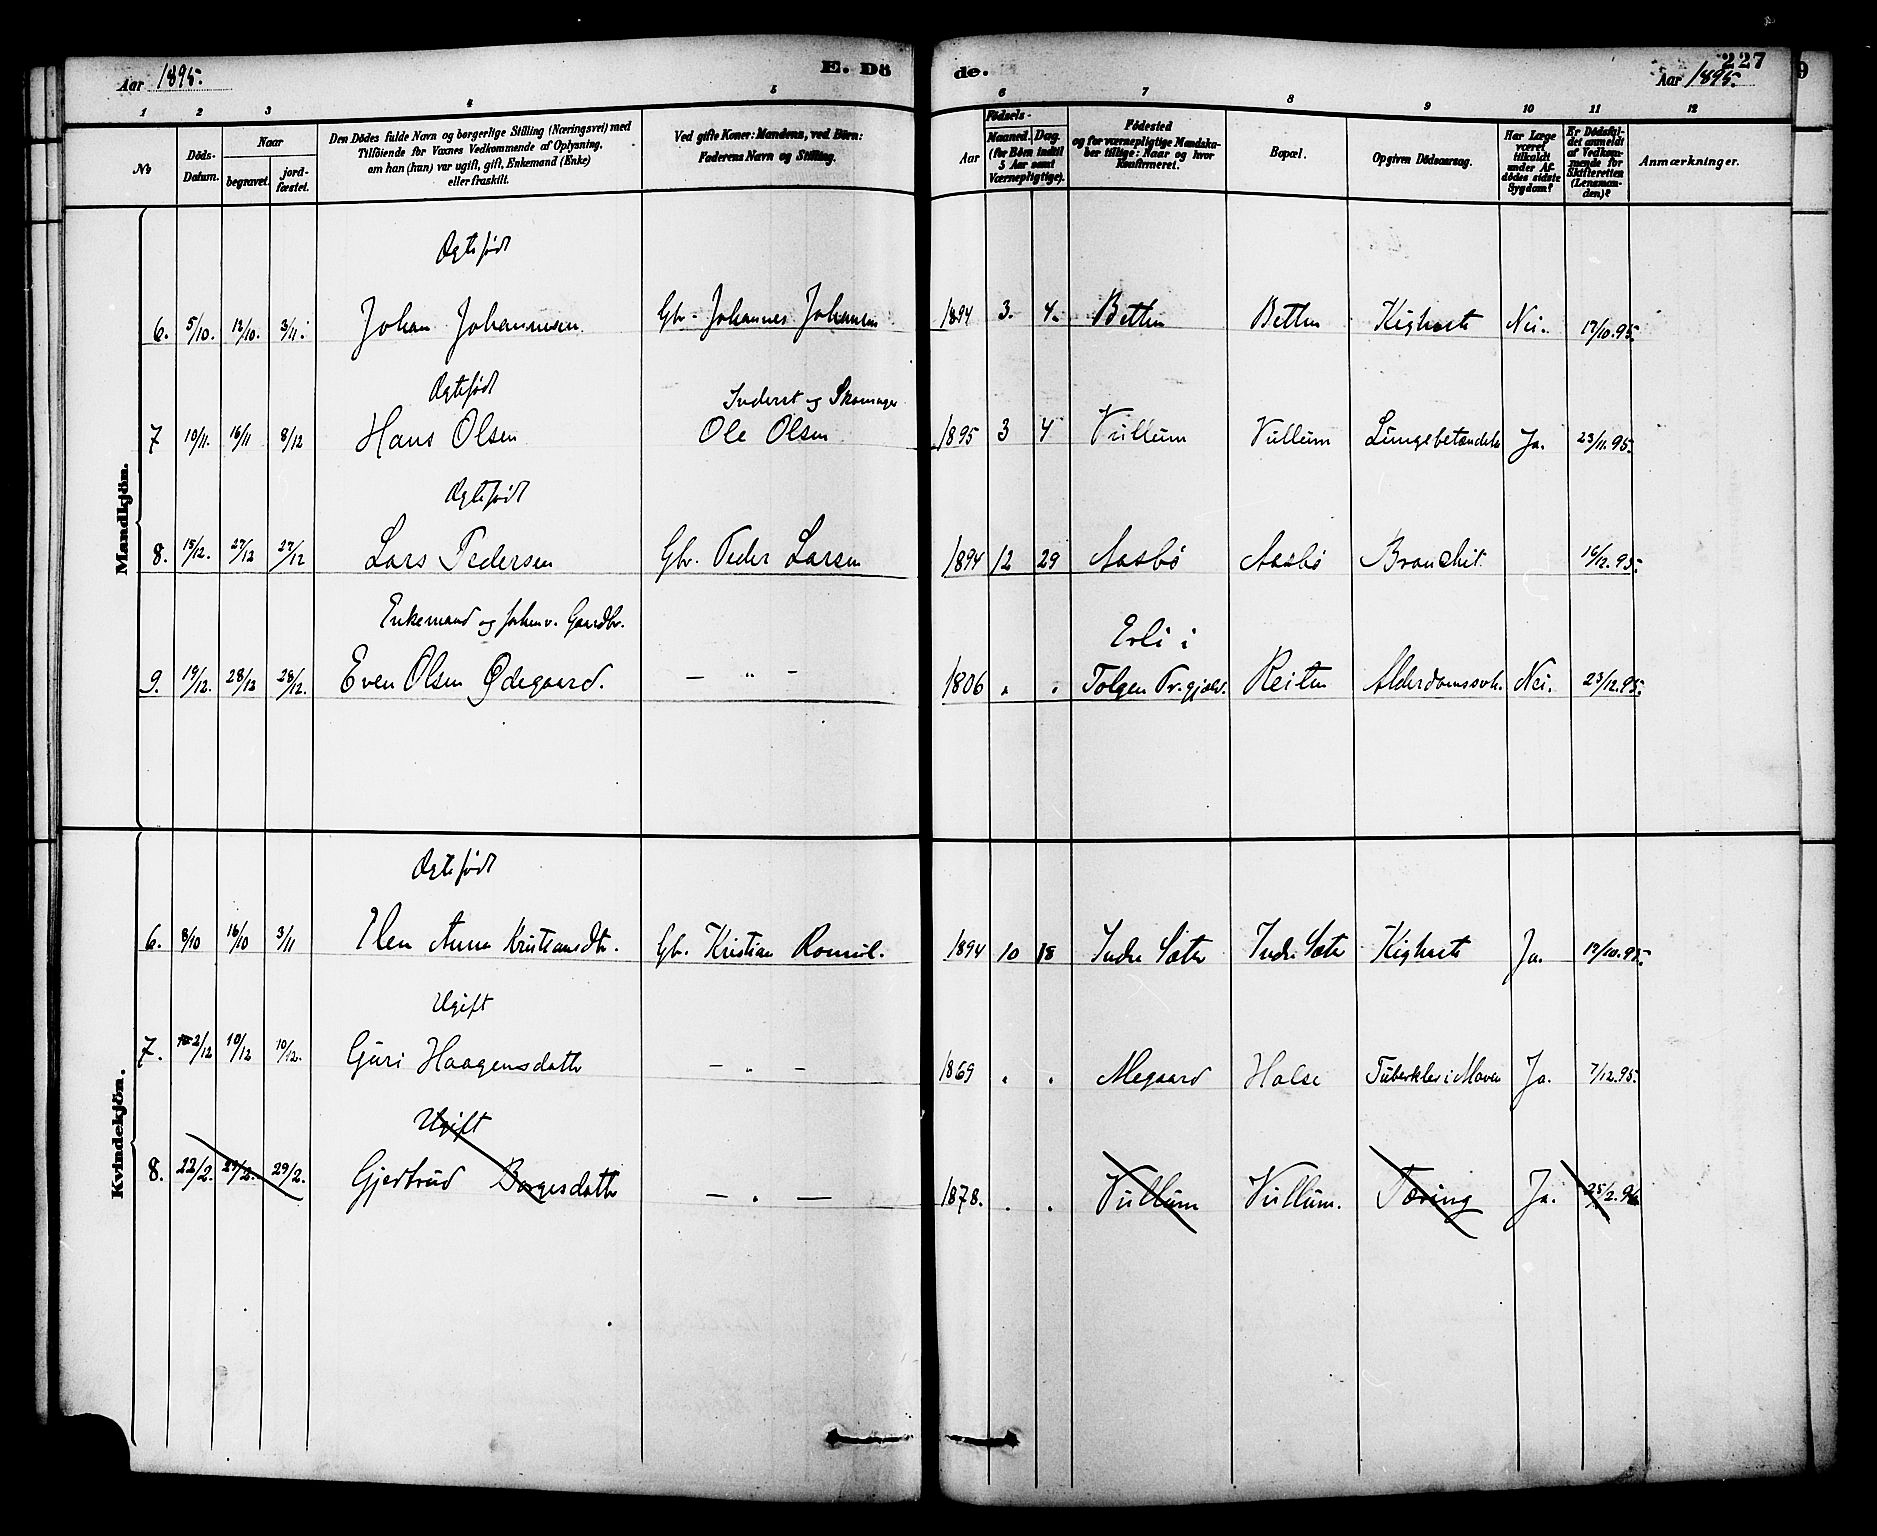 227
9
Aar 1895. E. Dö de. Aar 1895.
1 2 3 4 5 6 7 8 9 10 11 12
No
Döds-Datum.
Naar
begravet.
jord-fæstet.
Den Dödes fulde Navn og borgerlige Stilling (Næringsvei) med
Tilföiende for Voxnes Vedkommende af Oplysning,
om han (hun) var ugift, gift, Enkemand (Enke)
eller fraskilt.
Ved gifte Koner: Mandens, ved Börn:
Faderens Navn og Stilling.
Födsels-
Aar
Maaned. Dag.
(for Börn indtil
5 Aar samt
Værnepligtige).
Födested
og for værnepligtige Mandska-
ber tillige: Naar og hvor
Konfirmeret.
Bopæl.
Opgiven Dödsaarsag.
Har Læge
været
tilkaldt
under Af-
dödes sidste
Sygdom?
Er Dödsfal-
det anmeldt
af Vedkom-
mende for
Skifteretten
(Lensman-
den)?
Anmærkninger.
Mandkjön.
Ægtefødt
6. 5/10. 12/10. 3/11. Johan Johannesen Gbr. Johannes Johansen 1894 3. 4. Betten Betten Kighoste Nei. 17/10.95.
Ægtefødt
Inderst og Skomager
7 10/11. 16/11 8/12 Hans Olsen Ole Olsen 1895 3 4 Vullum Vullum Lungebetændelse Ja. 23/11.95.
Ægtefødt
8. 15/12. 27/12 27/12 Lars Pedersen Gbr. Peder Larsen 1894 12 29 Aasbø Aasbø Bronchit 16/12.95.
Enkemand og forhenv. Gaardbr.
Erli i
9. 19/12. 28/12 28/12. Even Olsen Ødegaard. — „ — 1806 „ „ Tolgen Pr.gjeld. Reiten Alderdomssvk. Nei. 23/12.95.
Kvindekjön.
Ægtefødt
6. 8/10 16/10 3/11 Elen Anna Kristiansdtr. Gbr. Kristian 1894 10 18 Indre Sæter Indre Sæter Kighoste Ja. 12/10.95.
Ugift
7. 2/12 10/12 10/12. Guri Haagensdatter — „ — 1869 „ „ Megaard Halse Tuberkler i Maven Ja. 7/12.95.
Ugift
8. 22/2. 29/2. 29/2. Gjertrud Børgesdatter — „ — 1878. „ „ Vullum Vullum. Tæring Ja. 25/2.96